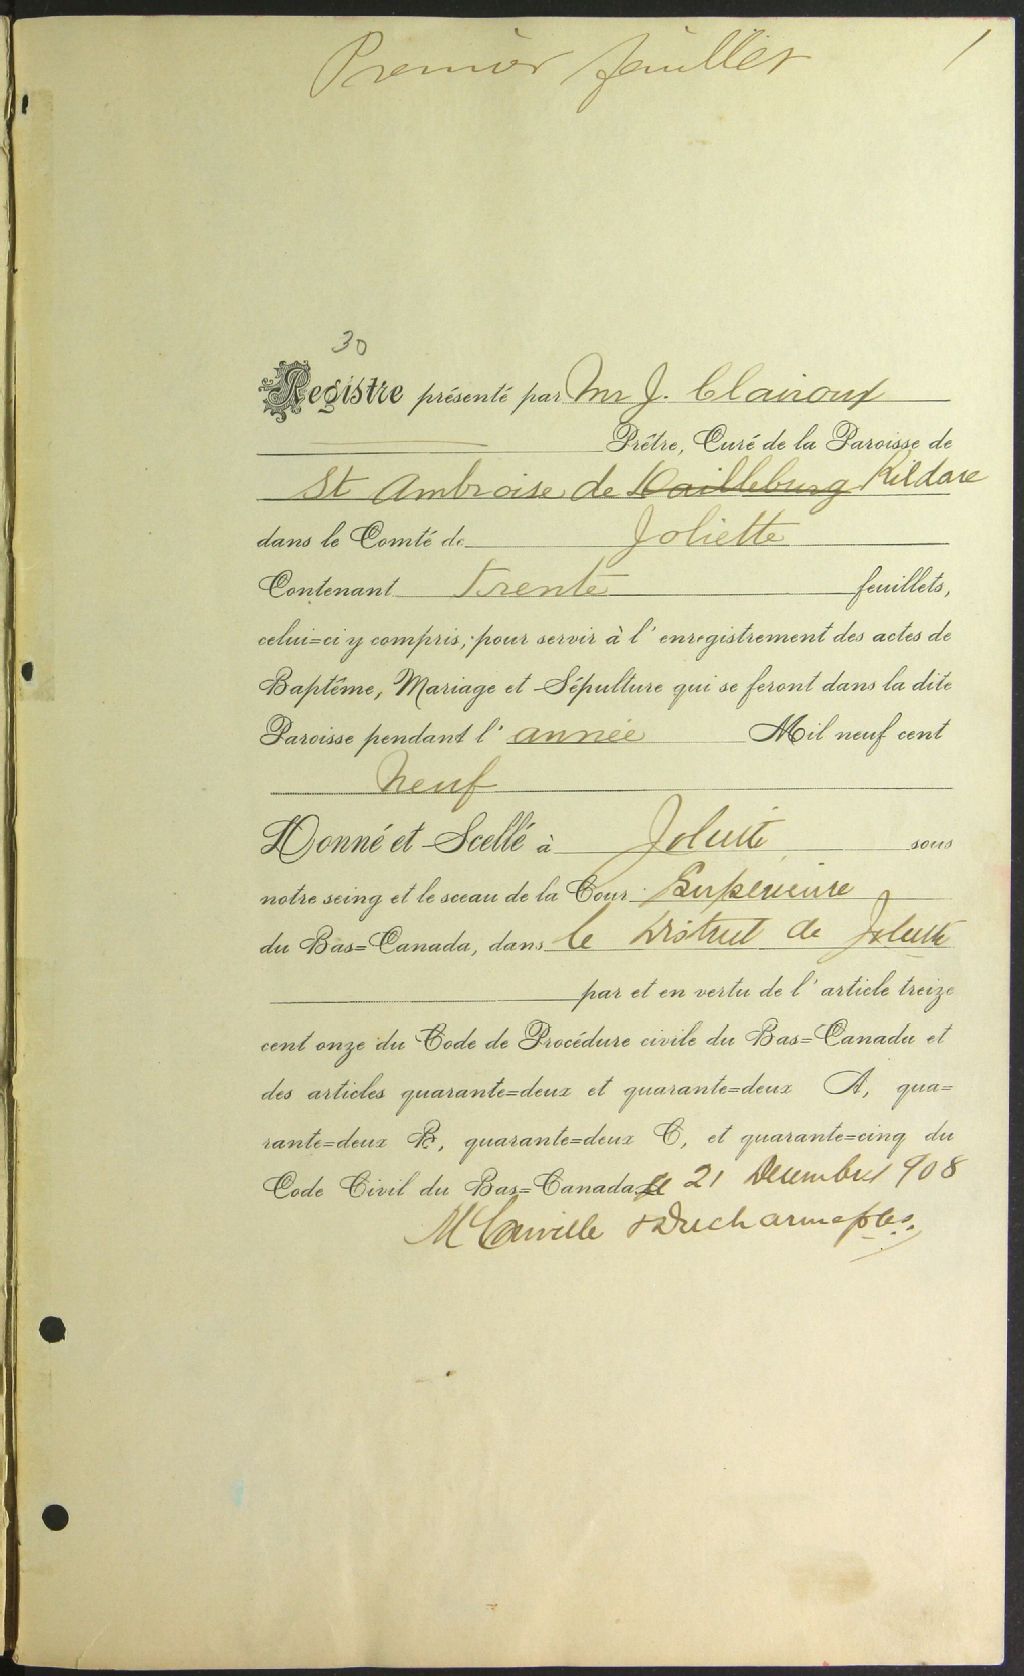 Premier feuillet 1
30
Registre présenté par Mr J. Clairoux
Prêtre, Curé de la Paroisse de
St Ambroise de Dailleburg Kildare
dans le Comté de Joliette
Contenant Trente feuillets,
celui=ci y compris, pour servir à l'enregistrement des actes de
Baptême, Mariage et Sépulture qui se feront dans la dite
Paroisse pendant l'année Mil neuf cent
Neuf
Donné et Scellé à Joliette sous
notre seing et le sceau de la Cour Supérieure
du Bas=Canada, dans le District de Joliette
par et en vertu de l'article treize
cent onze du Code de Procédure civile du Bas=Canada et
des articles quarante=deux et quarante=deux A, qua=
rante=deux B, quarante=deux C, et quarante=cinq du
Code Civil du Bas=Canada le 21 Decembre 908
Ducharme